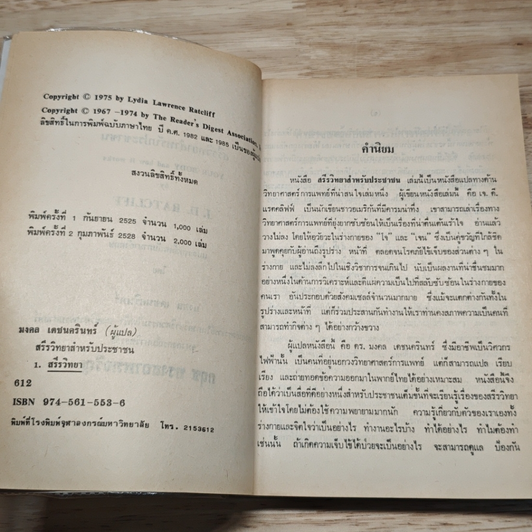 Copyright © 1975 by Lydia Lawrence Ratcliff
Copyright © 1967 -1974 by The Reader's Digest Association,
ลิขสิทธิ์ในการพิมพ์ฉบับภาษาไทย ปี ค.ศ. 1982 และ 1985 เป็นของ
สงวนลิขสิทธิ์ทั้งหมด
พิมพ์ครั้งที่ 1 กันยายน 2525 จำนวน 1,000 เล่ม
พิมพ์ครั้งที่ 2 กุมภาพันธ์ 2528 จำนวน 2,000 เล่ม
มงคล เดชนครินทร์ (ผู้แปล)
สรีรวิทยาสำหรับประชาชน
1. สรีรวิทยา
612
ISBN 974-561-553-6
พิมพ์ที่โรงพิมพ์จุฬาลงกรณ์มหาวิทยาลัย โทร. 2153612
คำนิยม
หนังสือ สรีรวิทยาสำหรับประชาชน เล่มนี้เป็นหนังสือแปลทางด้าน
วิทยาศาสตร์การแพทย์ที่น่าสนใจเล่มหนึ่ง ผู้เขียนหนังสือเล่มนี้ คือ เจ. ดี.
แรตคลิฟฟ์ เป็นนักเขียนชาวอเมริกันที่มีความน่าทึ่ง เขาสามารถเล่าเรื่องทาง
วิทยาศาสตร์การแพทย์ที่ยุ่งยากซับซ้อนให้เป็นเรื่องที่น่าตื่นเต้นเร้าใจ อ่านแล้ว
วางไม่ลง โดยให้อวัยวะในร่างกายของ "โจ" และ "เจน" ซึ่งเป็นคู่ขวัญที่ใกล้ชิด
มาพูดคุยกับผู้อ่านถึงรูปร่าง หน้าที่ ตลอดจนโรคภัยไข้เจ็บของส่วนต่าง ๆ ใน
ร่างกาย และไม่ลงลึกไปในเชิงวิชาการจนเกินไป นับเป็นผลงานที่น่าชื่นชมมาก
อย่างหนึ่งในด้านการวิเคราะห์และตีแผ่ความเป็นไปที่สลับซับซ้อนในร่างกายของ
คนเรา อันประกอบด้วยสังคมเซลล์จำนวนมากมาย ซึ่งแม้จะแตกต่างกันทั้งใน
รูปร่างและหน้าที่ แต่ก็ร่วมประสานกันทำงานให้เราท่านคงสภาพความเป็นคนที่
สามารถทำกิจต่าง ๆ ได้อย่างกว้างขวาง
ผู้แปลหนังสือนี้ คือ ดร. มงคล เดชนครินทร์ ซึ่งมีอาชีพเป็นวิศวกร
ไฟฟ้านั้น เป็นคนที่อยู่นอกวงวิทยาศาสตร์การแพทย์ แต่ก็สามารถแปล เรียบ
เรียง และถ่ายทอดข้อความออกมาในพากย์ไทยได้อย่างเหมาะสม หนังสือนี้จึง
ถือได้ว่าเป็นสื่อที่ดีอย่างหนึ่งสำหรับประชาชนเต็มขั้นที่จะเรียนรู้เรื่องของสรีรวิทยา
ให้เข้าใจโดยไม่ต้องใช้ความพยายามมากนัก ความรู้เกี่ยวกับตัวของเราเองทั้ง
ร่างกายและจิตใจว่าเป็นอย่างไร ทำงานอะไรบ้าง ทำได้อย่างไร ทำไมต้องทำ
เช่นนั้น ถ้าเกิดความเจ็บไข้ได้ป่วยจะเป็นอย่างไร จะสามารถดูแล ป้องกัน